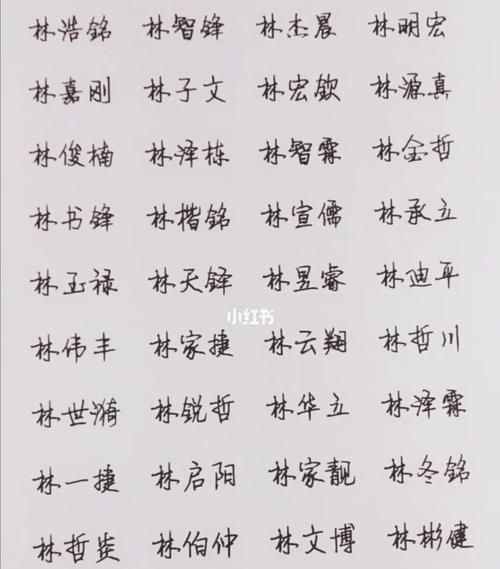 林浩铭 林智锋 林杰晨 林明宏
林嘉刚 林子文 林宏钦 林源真
林俊楠 林泽栋 林智霖 林金哲
林书锋 林楷铭 林宣儒 林承立
林玉禄 林天铎 林昱睿 林迪平
小红书
林伟丰 林家捷 林云翔 林哲川
林世漪 林锐哲 林华立 林泽霖
林一捷 林启阳 林家靓 林冬铭
林哲炎 林伯仲 林文博 林彬健